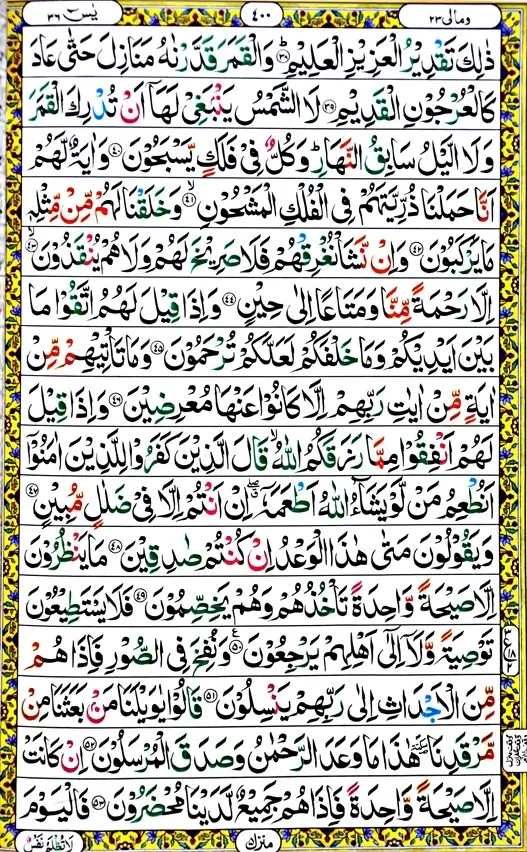 يٰسٓ ٣٦
٤٠٠
وَمَالِىَ ٢٣
ذٰلِكَ تَقْدِيْرُ الْعَزِيْزِ الْعَلِيْمِؕ‏ ﴿۳۸﴾ وَالْقَمَرَ قَدَّرْنٰهُ مَنَازِلَ حَتّٰى عَادَ
كَالْعُرْجُوْنِ الْقَدِيْمِ‏ ﴿۳۹﴾ لَا الشَّمْسُ يَنْۢبَغِىْ لَهَاۤ اَنْ تُدْرِكَ الْقَمَرَ
وَلَا الَّيْلُ سَابِقُ النَّهَارِؕ وَكُلٌّ فِىْ فَلَكٍ يَّسْبَحُوْنَ‏ ﴿۴۰﴾ وَاٰيَةٌ لَّهُمْ
اَنَّا حَمَلْنَا ذُرِّيَّتَهُمْ فِى الْفُلْكِ الْمَشْحُوْنِۙ‏ ﴿۴۱﴾ وَخَلَقْنَا لَهُمْ مِّنْ مِّثْلِهٖ
مَا يَرْكَبُوْنَ‏ ﴿۴۲﴾ وَاِنْ نَّشَاْ نُغْرِقْهُمْ فَلَا صَرِيْخَ لَهُمْ وَلَا هُمْ يُنْقَذُوْنَۙ‏ ﴿۴۳﴾
اِلَّا رَحْمَةً مِّنَّا وَمَتَاعًا اِلٰى حِيْنٍ‏ ﴿۴۴﴾ وَاِذَا قِيْلَ لَهُمُ اتَّقُوْا مَا
بَيْنَ اَيْدِيْكُمْ وَمَا خَلْفَكُمْ لَعَلَّكُمْ تُرْحَمُوْنَ‏ ﴿۴۵﴾ وَمَا تَاْتِيْهِمْ مِّنْ
اٰيَةٍ مِّنْ اٰيٰتِ رَبِّهِمْ اِلَّا كَانُوْا عَنْهَا مُعْرِضِيْنَ‏ ﴿۴۶﴾ وَاِذَا قِيْلَ
لَهُمْ اَنْفِقُوْا مِمَّا رَزَقَكُمُ اللّٰهُۙ قَالَ الَّذِيْنَ كَفَرُوْا لِلَّذِيْنَ اٰمَنُوْۤا
اَنُطْعِمُ مَنْ لَّوْ يَشَآءُ اللّٰهُ اَطْعَمَهٗۤ ۖ اِنْ اَنْتُمْ اِلَّا فِىْ ضَلٰلٍ مُّبِيْنٍ‏ ﴿۴۷﴾
وَيَقُوْلُوْنَ مَتٰى هٰذَا الْوَعْدُ اِنْ كُنْتُمْ صٰدِقِيْنَ‏ ﴿۴۸﴾ مَا يَنْظُرُوْنَ
اِلَّا صَيْحَةً وَّاحِدَةً تَاْخُذُهُمْ وَهُمْ يَخِصِّمُوْنَ‏ ﴿۴۹﴾ فَلَا يَسْتَطِيْعُوْنَ
تَوْصِيَةً وَّلَاۤ اِلٰٓى اَهْلِهِمْ يَرْجِعُوْنَ‏ ﴿۵۰﴾ وَنُفِخَ فِى الصُّوْرِ فَاِذَا هُمْ
مِّنَ الْاَجْدَاثِ اِلٰى رَبِّهِمْ يَنْسِلُوْنَ‏ ﴿۵۱﴾ قَالُوْا يٰوَيْلَنَا مَنْۢ بَعَثَنَا مِنْ
مَّرْقَدِنَا ۘ هٰذَا مَا وَعَدَ الرَّحْمٰنُ وَصَدَقَ الْمُرْسَلُوْنَ‏ ﴿۵۲﴾ اِنْ كَانَتْ
اِلَّا صَيْحَةً وَّاحِدَةً فَاِذَا هُمْ جَمِيْعٌ لَّدَيْنَا مُحْضَرُوْنَ‏ ﴿۵۳﴾ فَالْيَوْمَ
منزل
لَا تُظْلَمُ نَفْسٌ